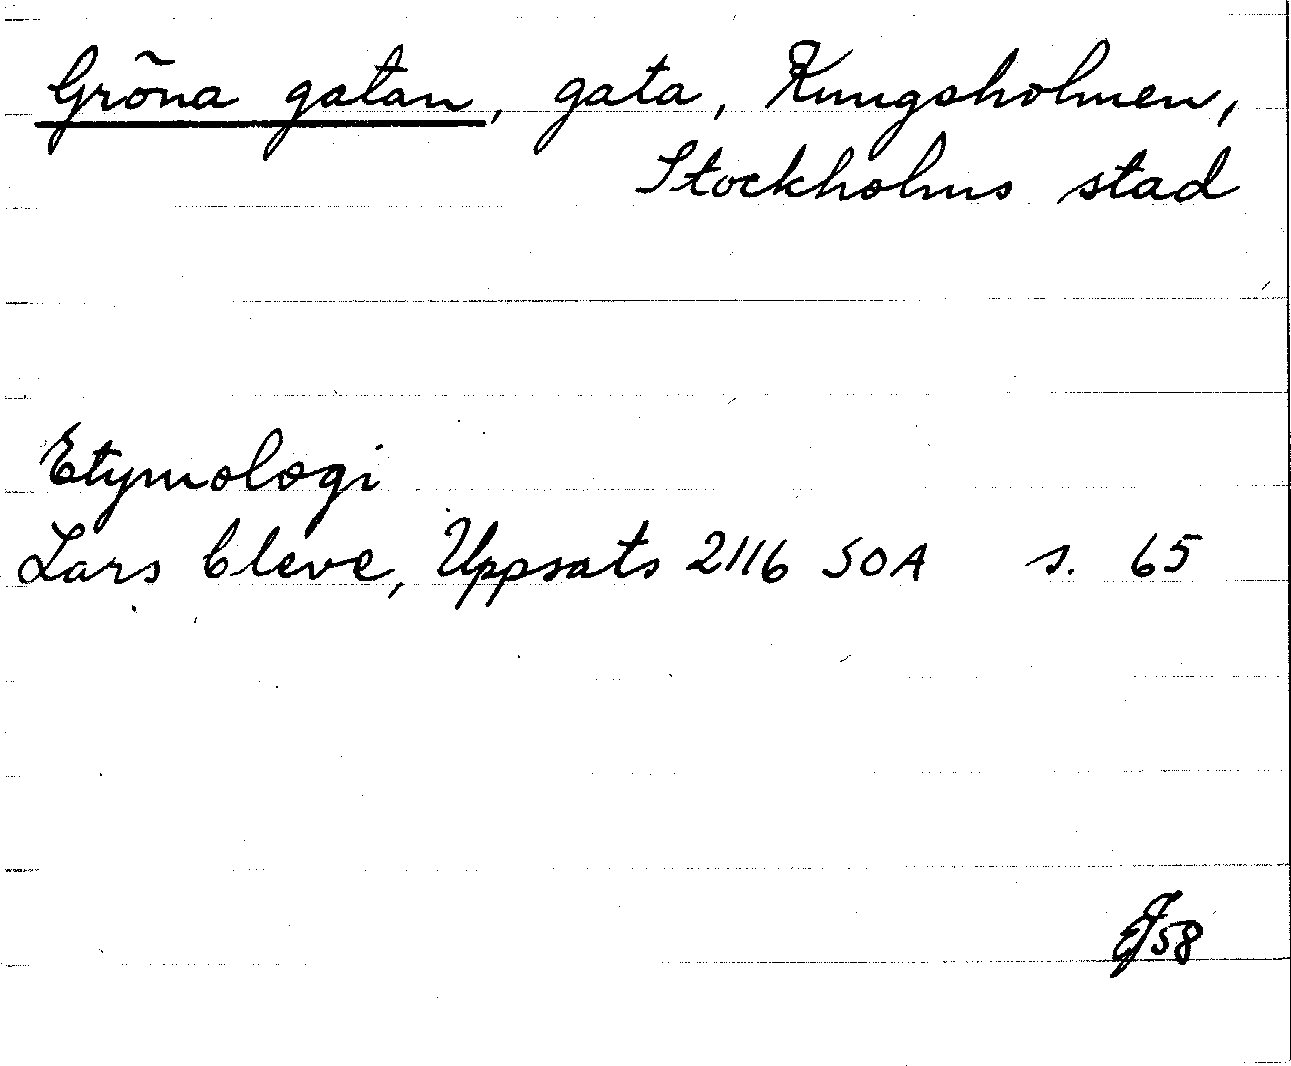 Gröna gatan, gata, Kungsholmen,
Stockholms stad
Etymologi
Lars Cleve, Uppsats 2116 SOA s. 65
58